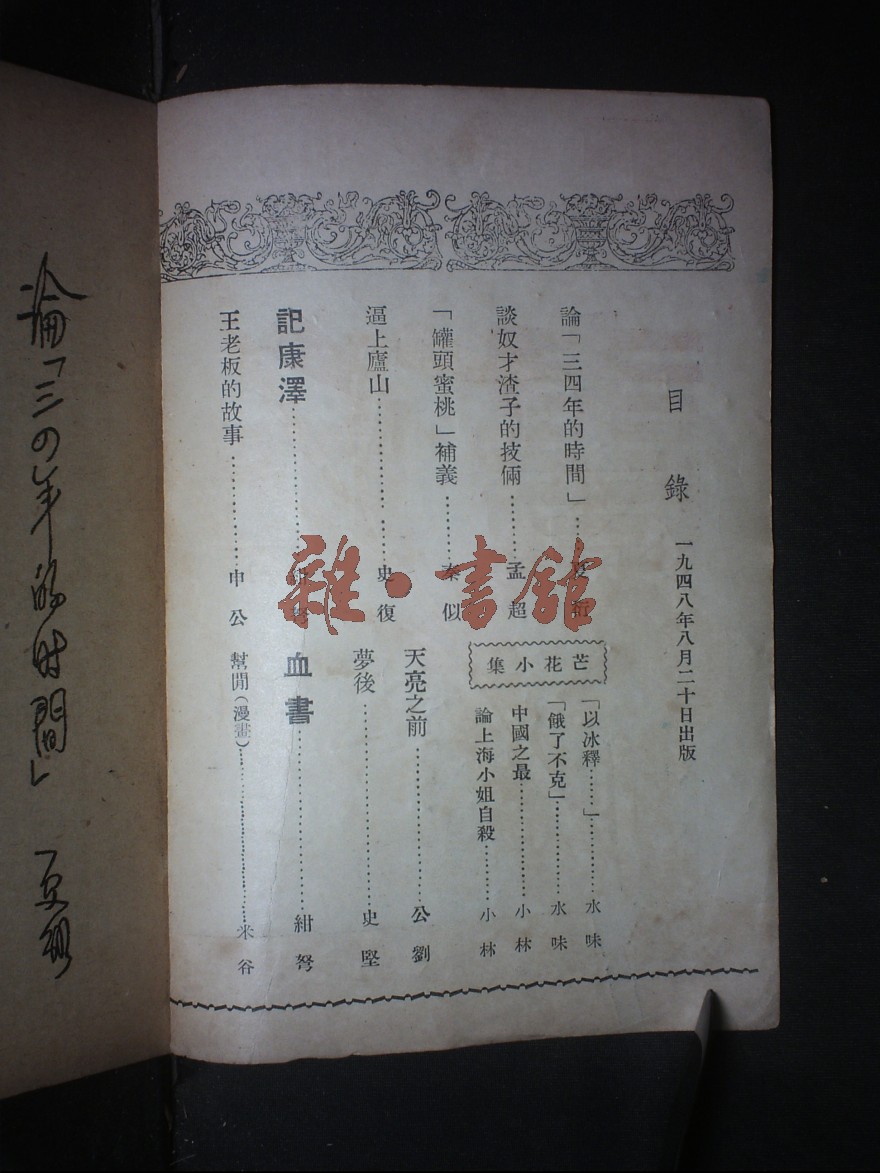 論「三四年的時間」 夏衍
目錄 一九四八年八月二十日出版
論「三四年的時間」……夏衍
談奴才渣子的技倆………孟超
「罐頭蜜桃」補義………秦似
逼上廬山……………………史復
記康澤……………………
王老板的故事……………………申公
芒花小集
「以冰釋……」……………水味
「餓了不克」……………水味
中國之最……………小林
論上海小姐自殺…………小林
天亮之前……………………公劉
夢後……………………史堅
血書……………………紺弩
幫閒(漫畫)……………………米谷
雜·書館